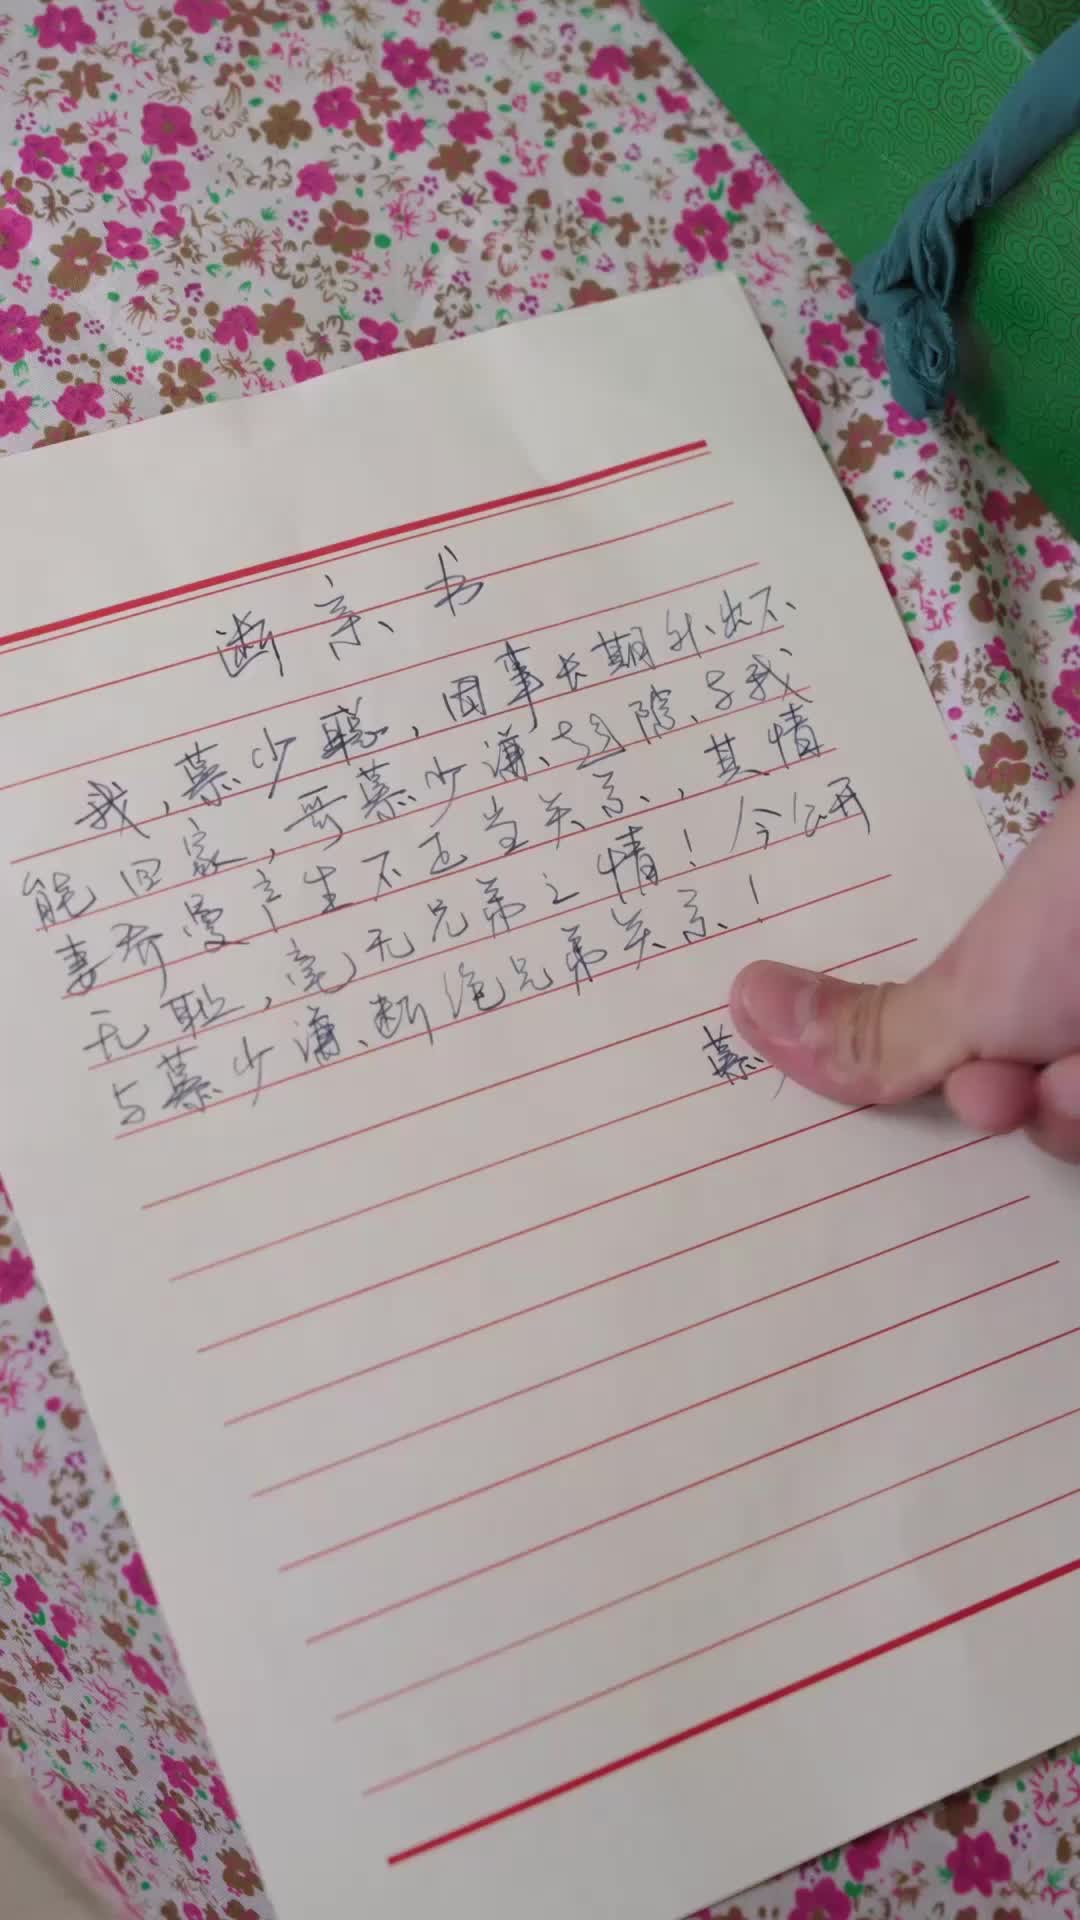 断亲书
我，慕少聪，因事长期外出不
能回家，哥慕少潇、趁隙、与我
妻乔曼产生不正当关系，其情
无耻，毫无兄弟之情！今公开
与慕少潇、断绝兄弟关系！
慕